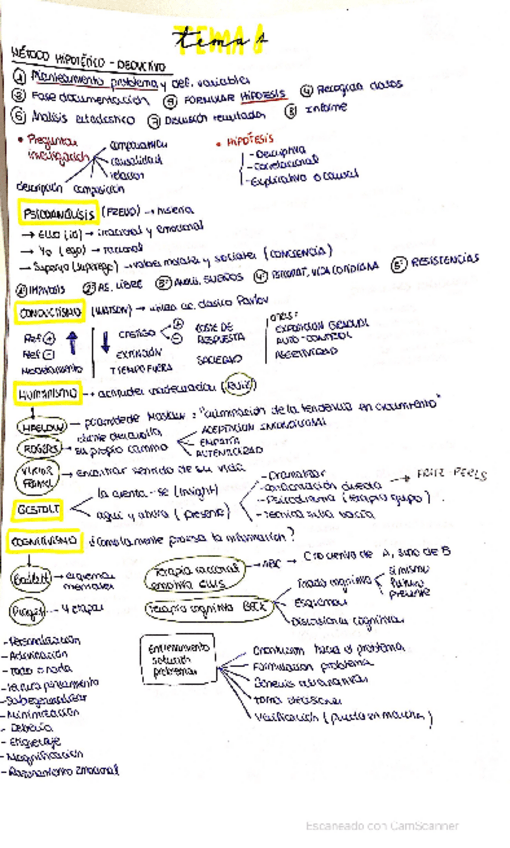 TEMA 6
temas
MÉTODO HIPOTÉTICO - DEDUCTIVO
① Planteamiento problema y def. variables
② Fase documentación ③ FORMULAR HIPÓTESIS ④ Recogida datos
⑥ Análisis estadístico ⑦ Discusión resultados ⑧ Informe
• Preguntas investigación
comparativa
causalidad
relación
composición
descripción
• HIPÓTESIS
- Descriptiva
- Correlacional
- Explicativa o causal
PSICOANÁLISIS (FREUD) → histeria
→ ELLO (id) → irracional y emocional
→ Yo (ego) → racional
→ Superyo (superego) → valores morales y sociales (CONCIENCIA)
① HIPNOSIS ② AS. LIBRE ③ ANÁLIS. SUEÑOS ④ PSICOPAT. VIDA COTIDIANA ⑤ RESISTENCIAS
CONDUCTISMO (WATSON) → utiliza ac. clásico Pavlov
Ref +
Ref -
Modelamiento
CASTIGO + -
EXTINCIÓN
TIEMPO FUERA
COSTE DE RESPUESTA
SACIEDAD
otras:
EXPOSICIÓN GRADUAL
AUTO-CONTROL
ASERTIVIDAD
HUMANISMO → actitudes inadecuadas
MASLOW → pirámide de Maslow: "culminación de la tendencia en crecimiento"
ROGERS → cliente desarrolla su propio camino
ACEPTACIÓN INCONDICIONAL
EMPATÍA
AUTENTICIDAD
VIKTOR FRANKL → encontrar sentido de su vida
GESTALT
la cuenta-se (insight)
aquí y ahora (presente)
- Dramatizar
- confrontación directa → FRITZ PERLS
- Psicodrama (terapia grupo)
- técnica silla vacía
COGNITIVISMO ¿Cómo la mente procesa la información?
Bartlett → esquemas mentales
Piaget → 4 etapas
Terapia racional emotiva ELLIS → ABC → C no deriva de A, sino de B
Terapia cognitiva BECK
Triada cognitiva
sí mismo
futuro
presente
Esquemas
Distorsiones cognitivas
- Personalización
- Adivinación
- Todo o nada
- Lectura pensamiento
- Sobregeneralizar
- Minimización
- Debería
- Etiquetaje
- Magnificación
- Razonamiento Emocional
Entrenamiento solución problemas
Orientación hacia el problema
Formulación problema
Génesis alternativas
Toma decisiones
Verificación (puesta en marcha)
Escaneado con CamScanner